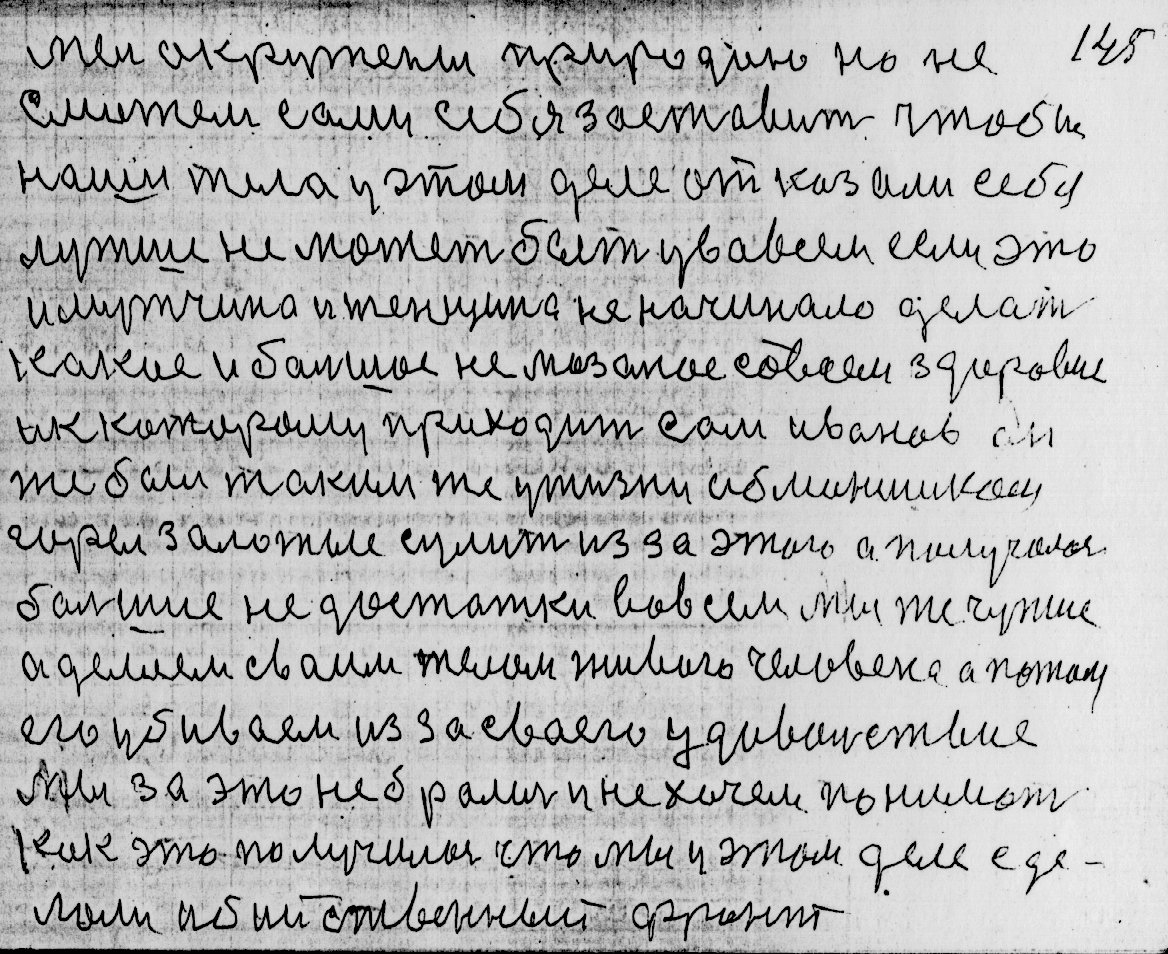 мы окружены природою но не 145
сможем сами себя заставит чтобы
наши тела у этом деле отказали себя
лутше не может быт у вавсем если это
имущчина и женщина не начинало делат
какое и балшое не мазаное совсем здоровие
ик каторому приходит сам иванов он
же был таким же у жизни абманшиком
горел заложые сулит из за этого а получалос
балшие недостатки вовсем мы же чужие
а делаем сваим телом живого человека а потом
его убиваем из за сваего удавольствие
мы за это не бралис и не хочем понимат
как это получилос что мы у этом деле сде-
лали убийственный фронт